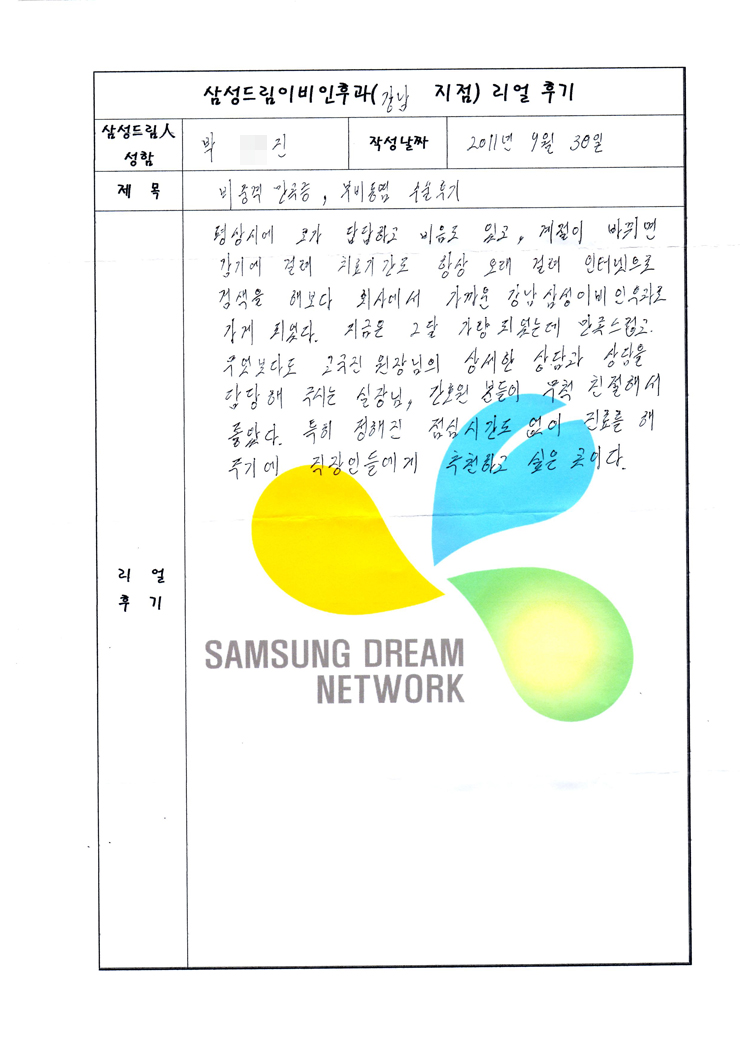 삼성드림이비인후과(강남 지점) 리얼 후기
삼성드림人 성함
박 진
작성날짜
2011년 9월 30일
제 목
비중격 만곡증, 부비동염 수술후기
리 얼
후 기
평상시에 코가 답답하고 비음도 있고, 계절이 바뀌면
감기에 걸려 치료기간도 항상 오래 걸려 인터넷으로
검색을 해보다 회사에서 가까운 강남삼성이비인후과로
가게 되었다. 지금은 2달 가량 되었는데 만족스럽고.
무엇보다도 고국진 원장님의 상세한 상담과 상담을
담당해 주시는 실장님, 간호원 분들이 무척 친절해서
좋았다. 특히 정해진 점심시간도 없이 진료를 해
주기에 직장인들에게 추천하고 싶은 곳이다.
SAMSUNG DREAM
NETWORK